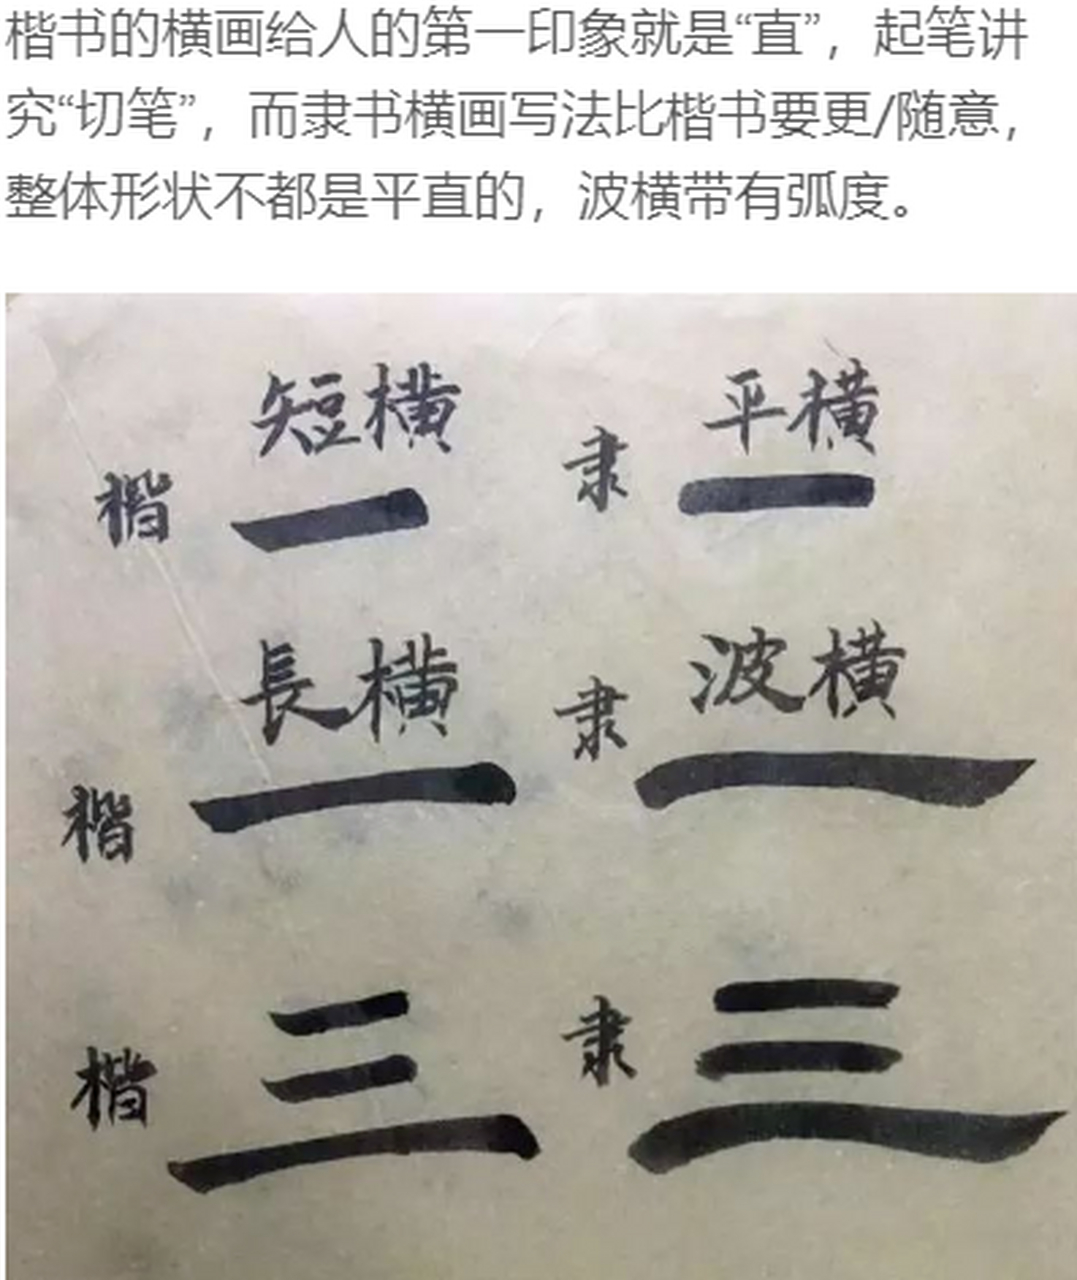 楷书的横画给人的第一印象就是“直”，起笔讲
究“切笔”，而隶书横画写法比楷书要更/随意，
整体形状不都是平直的，波横带有弧度。
短横 平横
楷 一 隶 一
長横 波横
楷 一 隶 一
楷 三 隶 三